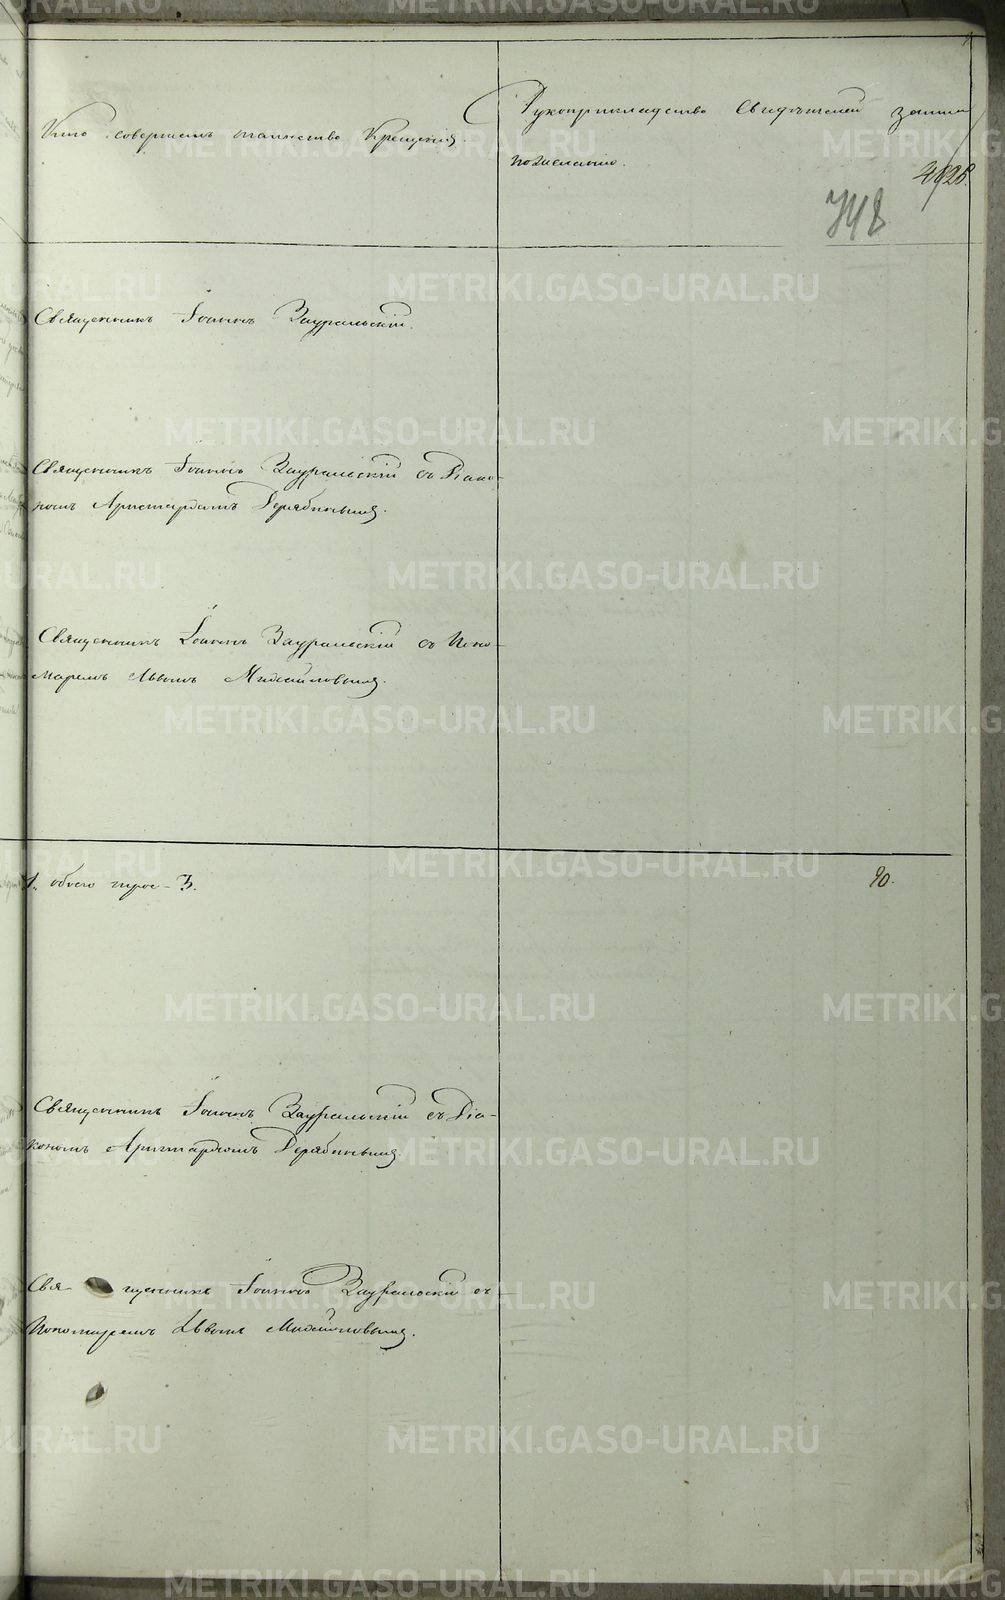 Кто совершалъ таинство Крещенія.
Рукоприкладство Свидѣтелей записи
по желанію.
748
Священникъ Іоаннъ Зауральскій.
Священникъ Іоаннъ Зауральскій съ Діако-
номъ Аристархомъ Дерябинымъ.
Священникъ Іоаннъ Зауральскій съ Поно-
маремъ Львомъ Михайловымъ.
1. обоего трое - 3.
90.
Священникъ Іоаннъ Зауральскій съ Діа-
кономъ Аристархомъ Дерябинымъ.
Священникъ Іоаннъ Зауральскій съ
Пономаремъ Львомъ Михайловымъ.
METRIKI.GASO-URAL.RU